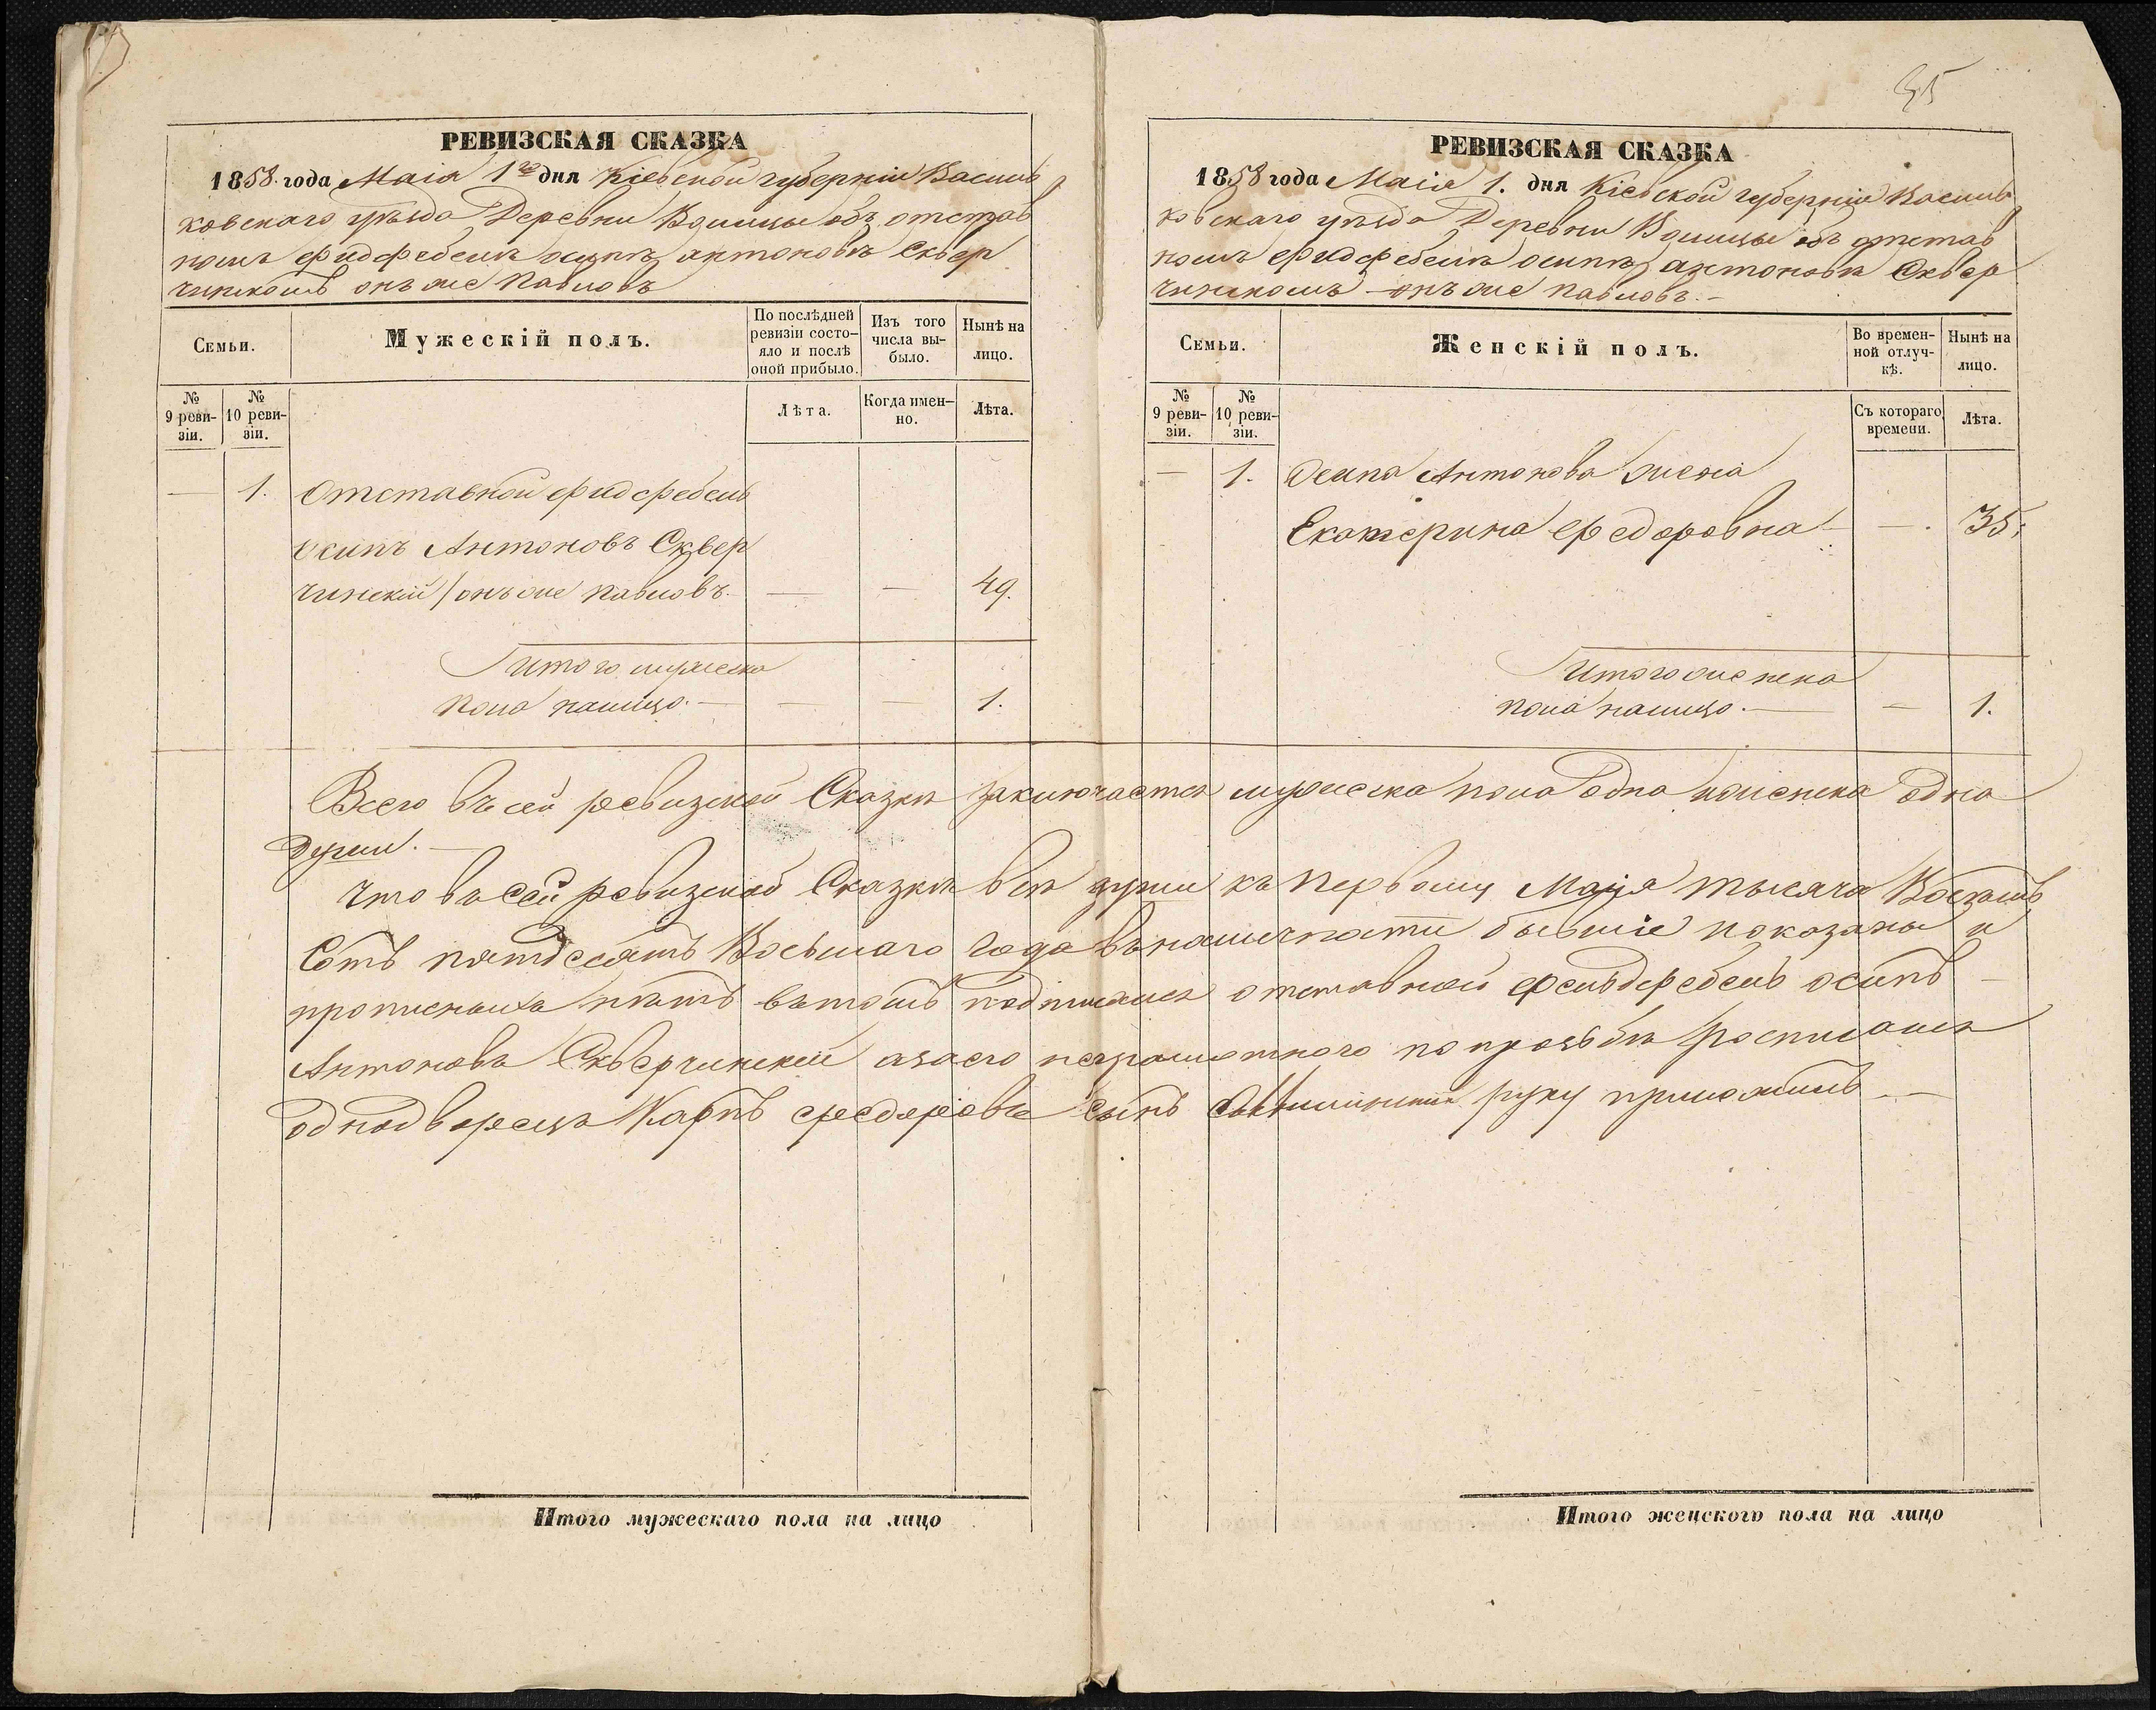 РЕВИЗСКАЯ СКАЗКА
1858 года Маія 1го дня Кіевской губерніи Василь
ковскаго уѣзда Деревни Волицы объ отстав
номъ фидфебелѣ осипѣ антоновѣ Сквер
чинскомъ онъ же Павловъ
Семьи.
Мужескій полъ.
По послѣдней ревизіи состо-яло и послѣ оной прибыло.
Изъ того числа вы-было.
Нынѣ на лицо.
№ 9 реви-зіи.
№ 10 реви-зіи.
Лѣта.
Когда имен-но.
Лѣта.
— 1. Отставной фидфебель
осипъ Антоновъ Сквер
чинскій / онъ же Павловъ. — — 49.
Итого мужеска
пола налицо. — — — 1.
35
РЕВИЗСКАЯ СКАЗКА
1858 года Маія 1. дня Кіевской губерніи Василь
ковскаго уѣзда Деревни Волицы объ отстав
номъ фидфебелѣ осипѣ антоновѣ Сквер
чинскомъ — онъ же Павловъ. —
Семьи.
Женскій полъ.
Во времен-ной отлуч-кѣ.
Нынѣ на лицо.
№ 9 реви-зіи.
№ 10 реви-зіи.
Съ котораго времени.
Лѣта.
— 1. Осипа Антонова жена
Екатерина Федоровна — — . 35.
Итого женска
пола налицо. — — 1.
Всего въ сей ревизской Сказкѣ заключается мужеска пола одна и женска одна
души. —
Что въ сей ревизской Сказкѣ всѣ души къ первому Маія тысяча Восемь
Сотъ пятдесятъ Восьмаго года въ наличности бывшіе показаны и
прописныхъ нѣтъ въ томъ подписался отставной фельдфебель осипъ —
Антоновъ Скверчинскій а за его неграмотного по прозьбѣ росписался
однодворецъ Карпъ федоровъ сынъ руку приложилъ —
Итого мужескаго пола на лицо
Итого женского пола на лицо